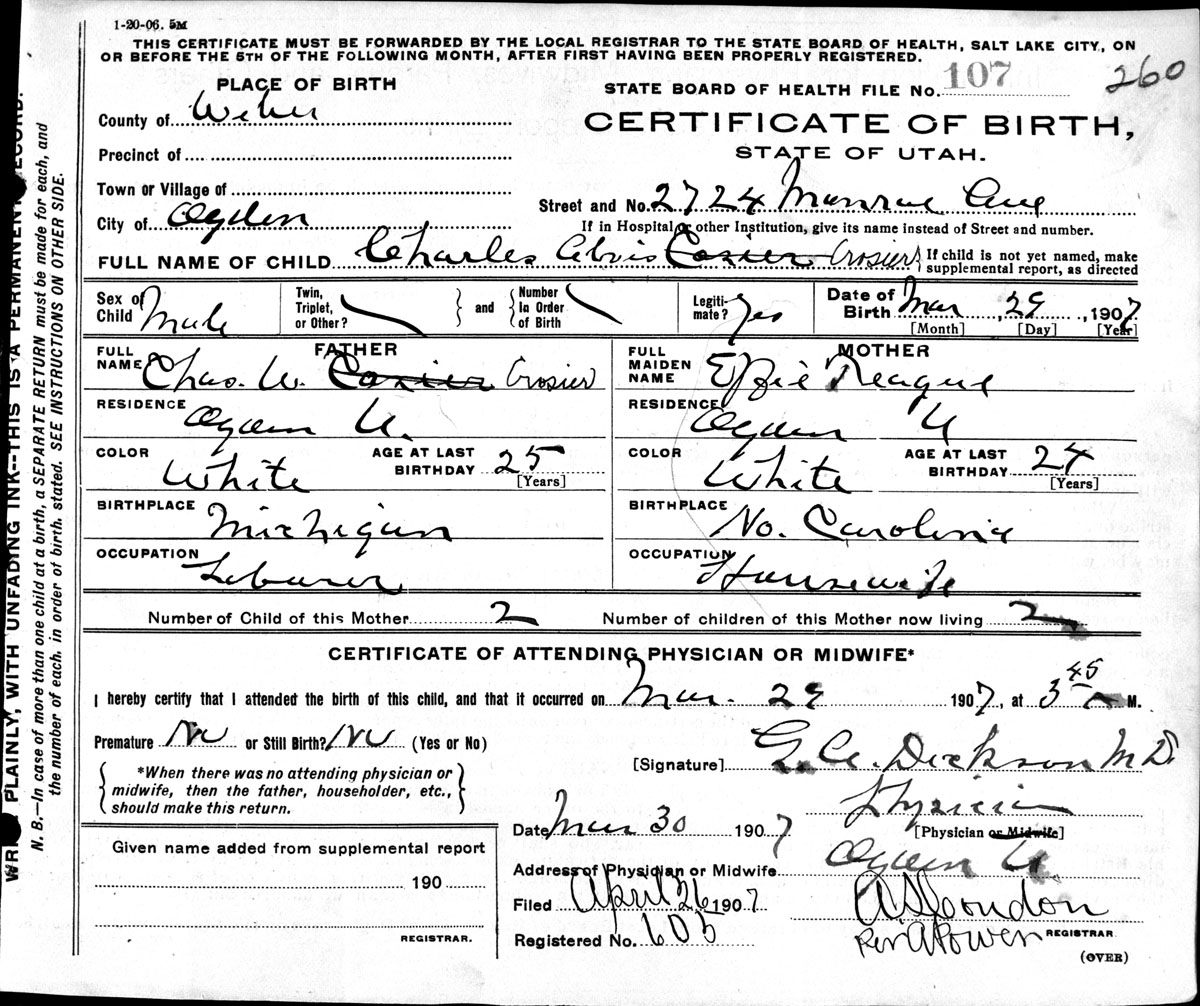 1-20-06. 5M
THIS CERTIFICATE MUST BE FORWARDED BY THE LOCAL REGISTRAR TO THE STATE BOARD OF HEALTH, SALT LAKE CITY, ON
OR BEFORE THE 5TH OF THE FOLLOWING MONTH, AFTER FIRST HAVING BEEN PROPERLY REGISTERED.
260
PLACE OF BIRTH
STATE BOARD OF HEALTH FILE No. 107
County of Weber
CERTIFICATE OF BIRTH,
STATE OF UTAH.
Precinct of
Town or Village of
Street and No. 2724 Monroe Ave
City of Ogden
If in Hospital or other Institution, give its name instead of Street and number.
FULL NAME OF CHILD Charles Alvis Cozier Crosier
If child is not yet named, make
supplemental report, as directed
Sex of Child Male
Twin, Triplet, or Other?
and
Number In Order of Birth
Legiti-mate? yes
Date of Birth Mar 29, 1907
[Month] [Day] [Year]
FATHER
FULL NAME Chas. W. Cozier Crosier
RESIDENCE Ogden U.
COLOR White
AGE AT LAST BIRTHDAY 25
[Years]
BIRTHPLACE Michigan
OCCUPATION Laborer
MOTHER
FULL MAIDEN NAME Effie Teague
RESIDENCE Ogden U
COLOR White
AGE AT LAST BIRTHDAY 24
[Years]
BIRTHPLACE No. Carolina
OCCUPATION Housewife
Number of Child of this Mother 2
Number of children of this Mother now living 2
CERTIFICATE OF ATTENDING PHYSICIAN OR MIDWIFE*
I hereby certify that I attended the birth of this child, and that it occurred on Mar. 29 1907, at 3 45 A M.
Premature No or Still Birth? No (Yes or No)
[Signature] Dickson M.D.
*When there was no attending physician or
midwife, then the father, householder, etc.,
should make this return.
Physician
[Physician or Midwife]
Date Mar 30 1907
Address of Physician or Midwife Ogden U.
Given name added from supplemental report
190
REGISTRAR.
Filed April 26 1907
Registered No. 605
REGISTRAR
(OVER)
WRITE PLAINLY, WITH UNFADING INK--THIS IS A PERMANENT RECORD.
N. B.—In case of more than one child at a birth, a SEPARATE RETURN must be made for each, and
the number of each, in order of birth, stated. SEE INSTRUCTIONS ON OTHER SIDE.